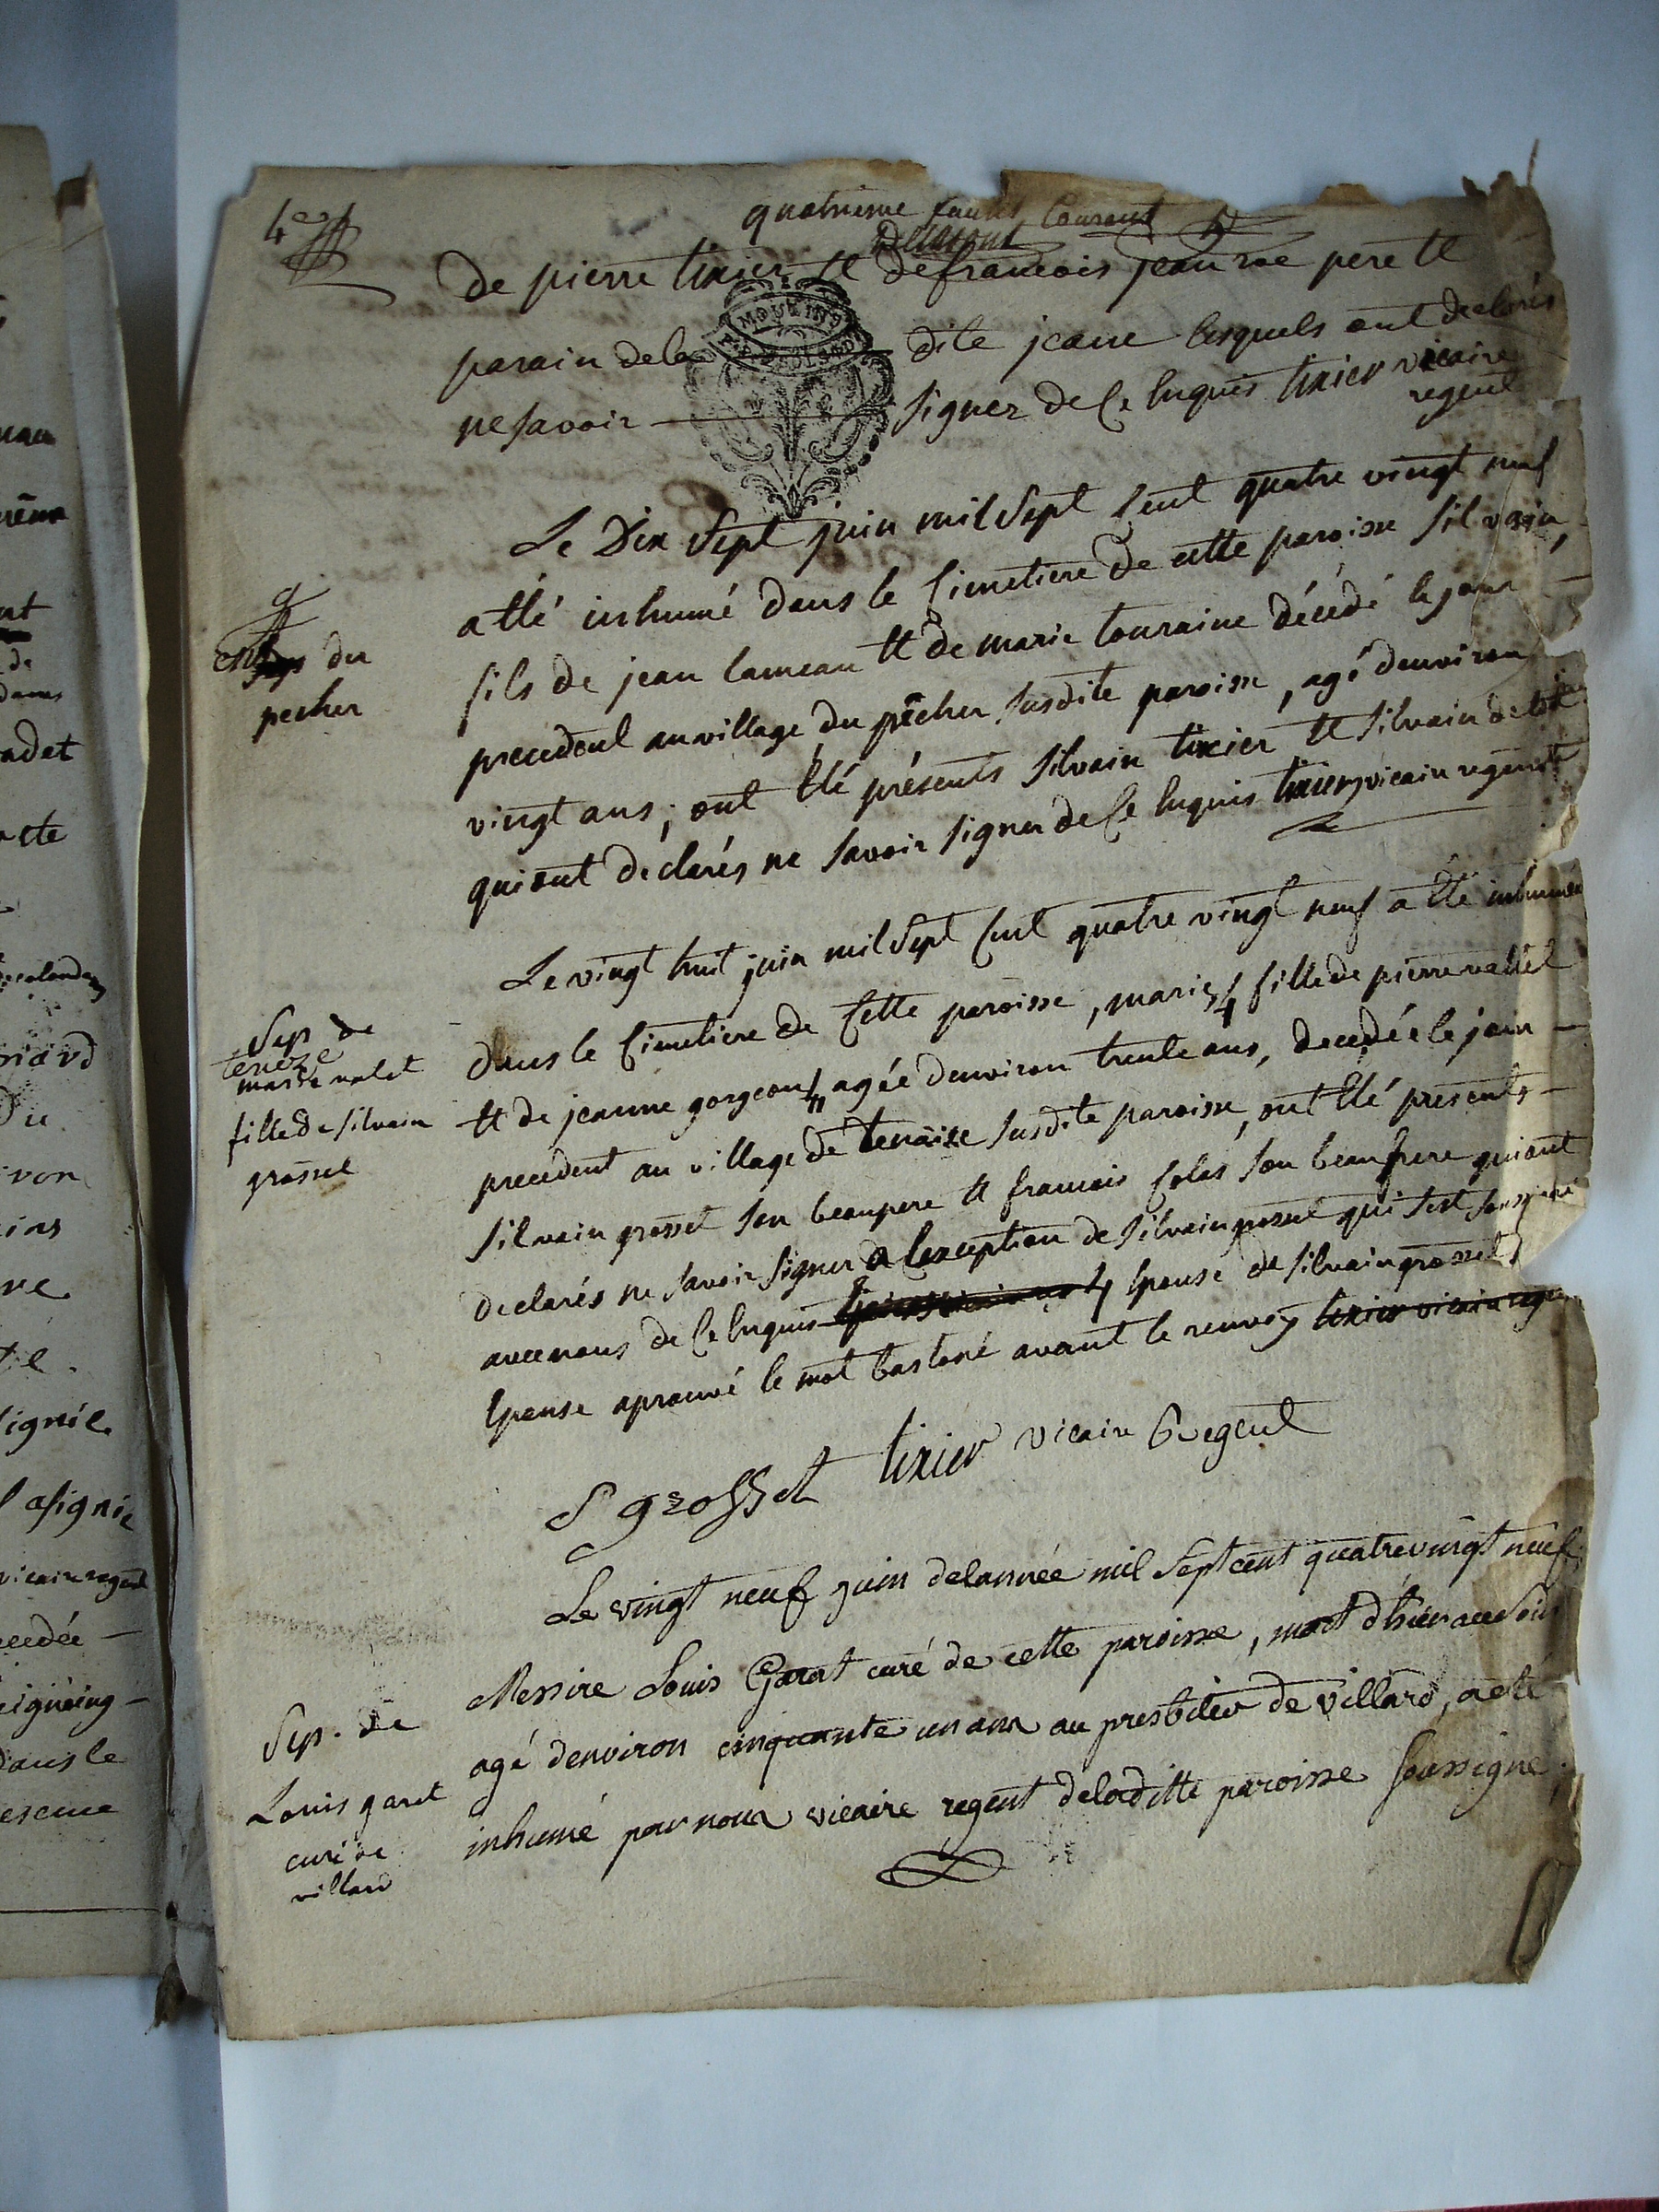 4e
quatrieme
de pierre tixier et de francois jean pere et
parain dela dite jeane lesquels ont declarés
ne savoir signer de ce enquis tixier vicaire
regent
Le Dix Sept juin mil Sept cent quatre vingt neuf
a eté inhumé dans le cimetiere de cette paroisse silvain,
fils de jean lameau et de marie touraine décédé le jour
du
pecher
precedent au village du pêcher susdite paroisse, agé denviron
vingt ans; ont eté présents silvain tixier et silvain
qui ont declarés ne savoir signer de ce enquis tixier vicaire regent
Le vingt huit juin mil Sept cent quatre vingt neuf a eté inhumée
dans le cimetiere de cette paroisse, marie fille de pierre vallet
Sep de
teneze
marie valet
fille de silvain
grosset
et de jeanne gorgeon agée denviron trente ans, decedée le jour
precedent au village de tenaize susdite paroisse, ont eté presents
silvain grosset son beaupere et francois colas son beaufrere qui ont
declarés ne savoir signer a lexception de silvain grosset qui sest soussigné
avec nous de ce enquis epouse de silvain grosset
epouse aprouvé le mot bastoné avant le renvoy tixier vicaire regent
S grosset tixier vicaire Regent
Le vingt neuf juin delannée mil Sept cent quatre vingt neuf
Messire Louis Garat curé de cette paroisse, mort dhier au Soir
Sep. de
Louis garet
curé de
villard
agé denviron cinquante un ans au presbiter de villard, a eté
inhumé par nous vicaire regent deladitte paroisse soussigne
MOULINS